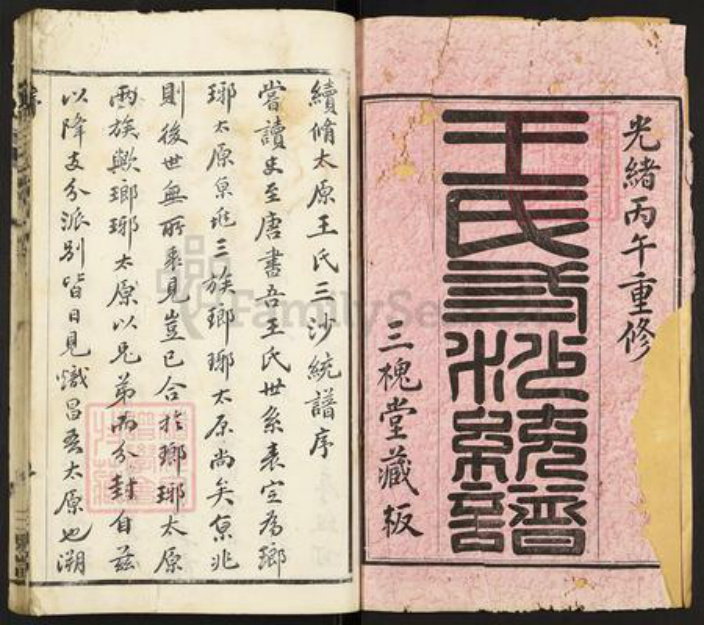 光緒丙午重修
王氏三沙統譜
三槐堂藏板
續脩太原王氏三沙統譜序
嘗讀史至唐書吾王氏世系表定為瑯
琊太原京兆三族瑯琊太原尚矣京兆
則後世無所表見豈已合於瑯琊太原
兩族歟瑯琊太原以兄弟而分封自茲
以降支分派別皆日見熾昌吾太原也溯
FamilySearch